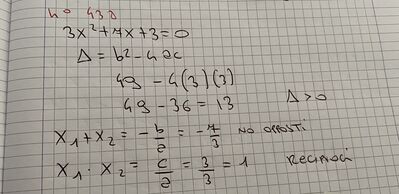 n° 430
3x²+7x+3=0
Δ = b²-4ac
49 - 4(3)(3)
49 - 36 = 13 Δ>0
x₁+x₂ = -b/a = -7/3 NO OPPOSTI
x₁·x₂ = c/a = 3/3 = 1 RECIPROCI